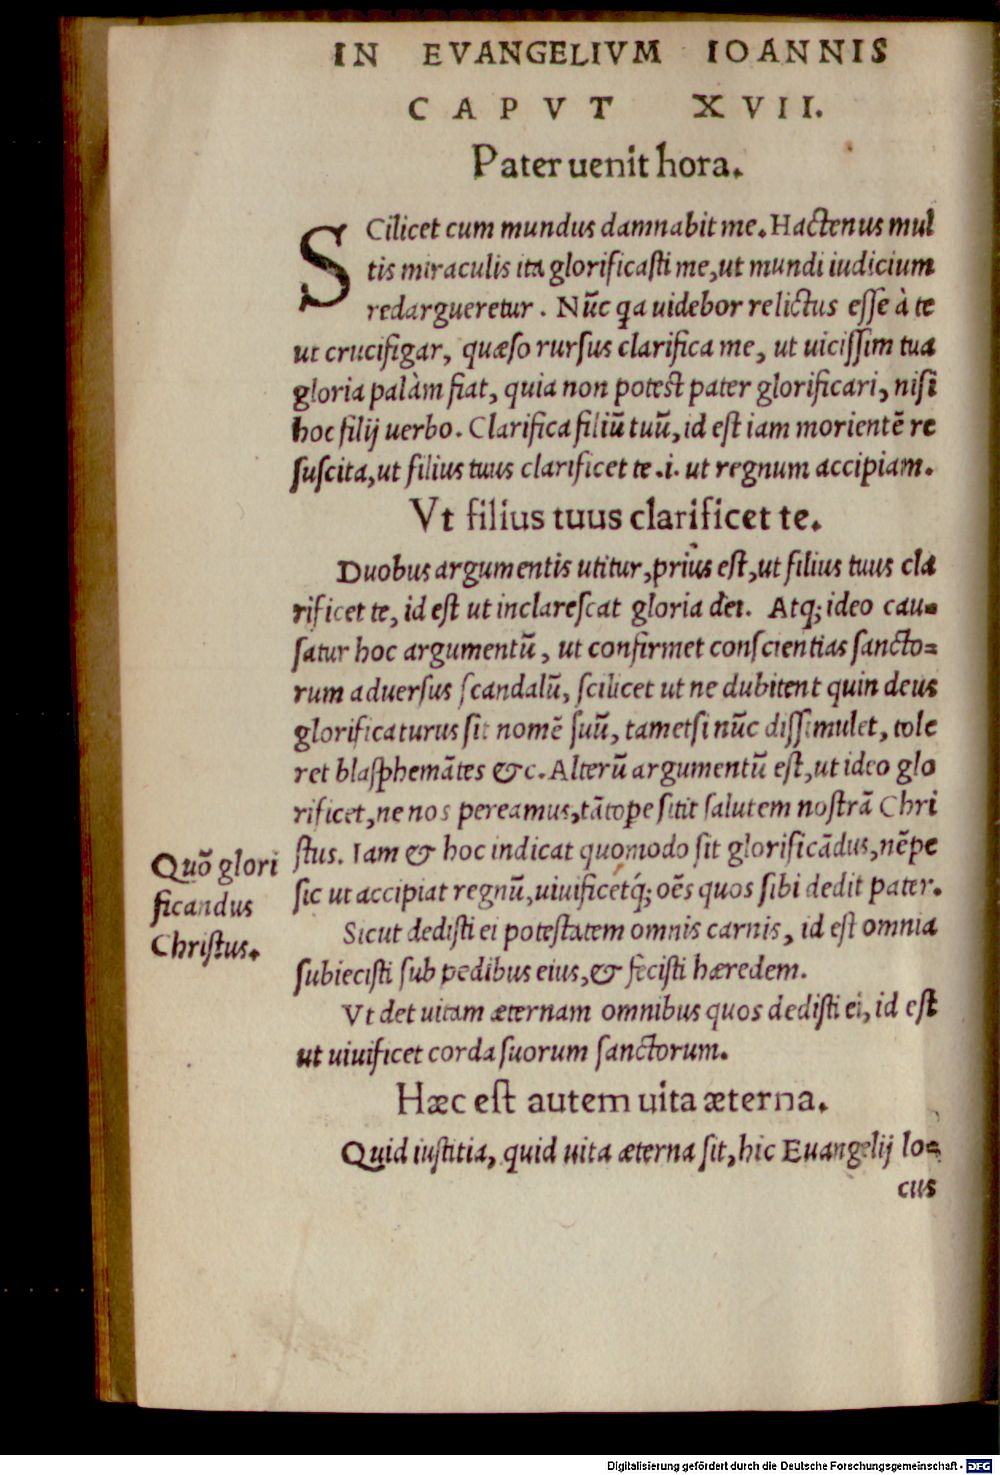 IN EVANGELIVM IOANNIS
CAPVT XVII.
Pater uenit hora.
SCilicet cum mundus damnabit me. Hactenus mul
tis miraculis ita glorificasti me, ut mundi iudicium
redargueretur. Nũc qa uidebor relictus esse à te
ut crucifigar, quæso rursus clarifica me, ut uicissim tua
gloria palàm fiat, quia non potest pater glorificari, nisi
hoc filij uerbo. Clarifica filiũ tuũ, id est iam morientẽ re
suscita, ut filius tuus clarificet te .i. ut regnum accipiam.
Vt filius tuus clarificet te.
Duobus argumentis utitur, prius est, ut filius tuus cla
rificet te, id est ut inclarescat gloria dei. Atq; ideo cau-
satur hoc argumentũ, ut confirmet conscientias sancto-
rum aduersus scandalũ, scilicet ut ne dubitent quin deus
glorificaturus sit nomẽ suũ, tametsi nũc dissimulet, tole
ret blasphemãtes &c. Alterũ argumentũ est, ut ideo glo
rificet, ne nos pereamus, tãtope sitit salutem nostrã Chri
stus. Iam & hoc indicat quomodo sit glorificãdus, nẽpe
sic ut accipiat regnũ, uiuificétq́; oẽs quos sibi dedit pater.
Quõ glori
ficandus
Christus.
Sicut dedisti ei potestatem omnis carnis, id est omnia
subiecisti sub pedibus eius, & fecisti hæredem.
Vt det uitam æternam omnibus quos dedisti ei, id est
ut uiuificet corda suorum sanctorum.
Hæc est autem uita æterna.
Quid iustitia, quid uita æterna sit, hic Euangelij lo-
cus
Digitalisierung gefördert durch die Deutsche Forschungsgemeinschaft - DFG